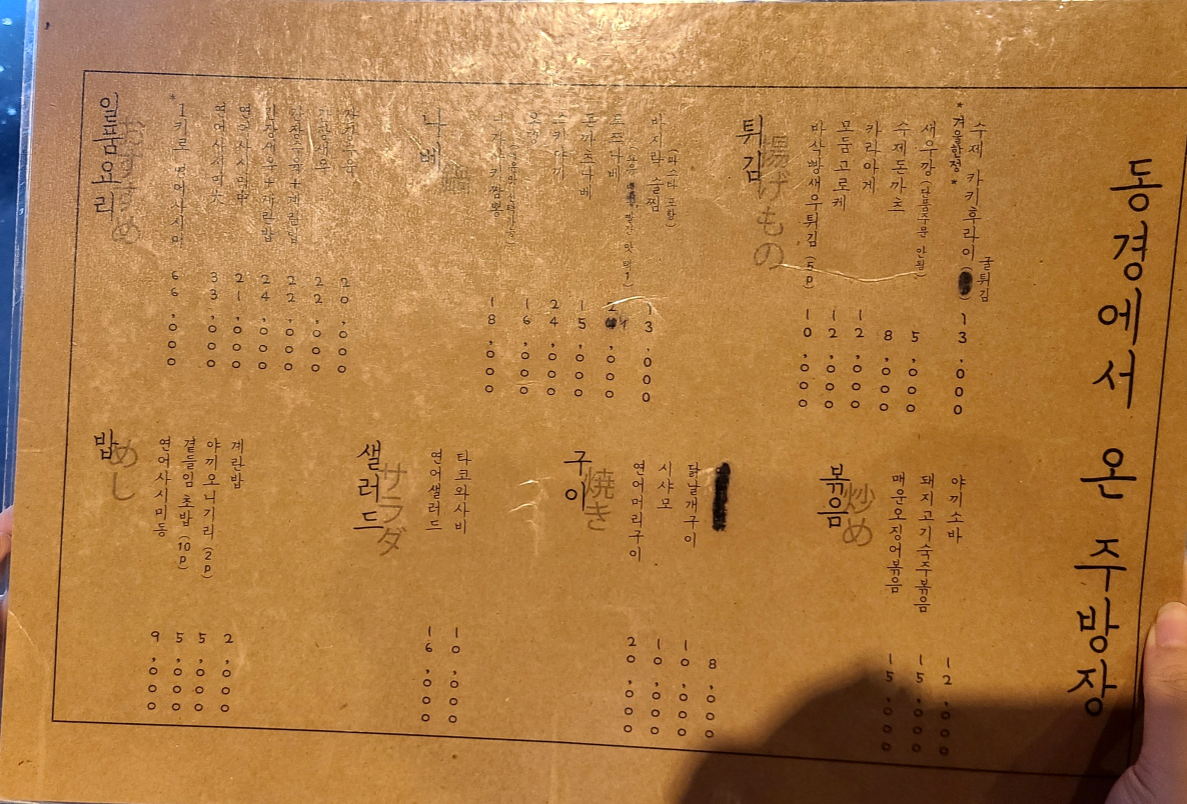 동경에서 온 주방장
일품요리
おすすめ
*1키로 연어사시미 66,000
연어사시미大 33,000
연어사시미中 21,000
간장새우+계란밥 24,000
+계란밥 22,000
간장새우 22,000
20,000
나베
鍋
나가사키짬뽕 18,000
오뎅 16,000
스키야끼 24,000
돈까스나베 15,000
모츠나베
바지락 술찜 13,000
(파스타 포함)
튀김
揚げもの
바삭빵새우튀김 (5p) 10,000
모둠고로케 12,000
카라아게 12,000
수제돈까츠 8,000
새우깡 (단품주문 안됨) 5,000
*겨울한정*
수제 카키후라이 13,000
굴튀김
밥
めし
연어사시미동 9,000
곁들임 초밥 (10p) 5,000
야끼오니기리 (2p) 5,000
계란밥 2,000
샐러드
サラダ
연어샐러드 16,000
타코와사비 10,000
구이
焼き
연어머리구이 20,000
시샤모 10,000
닭날개구이 10,000
8,000
볶음
炒め
매운오징어볶음 15,000
돼지고기숙주볶음 15,000
야끼소바 12,000